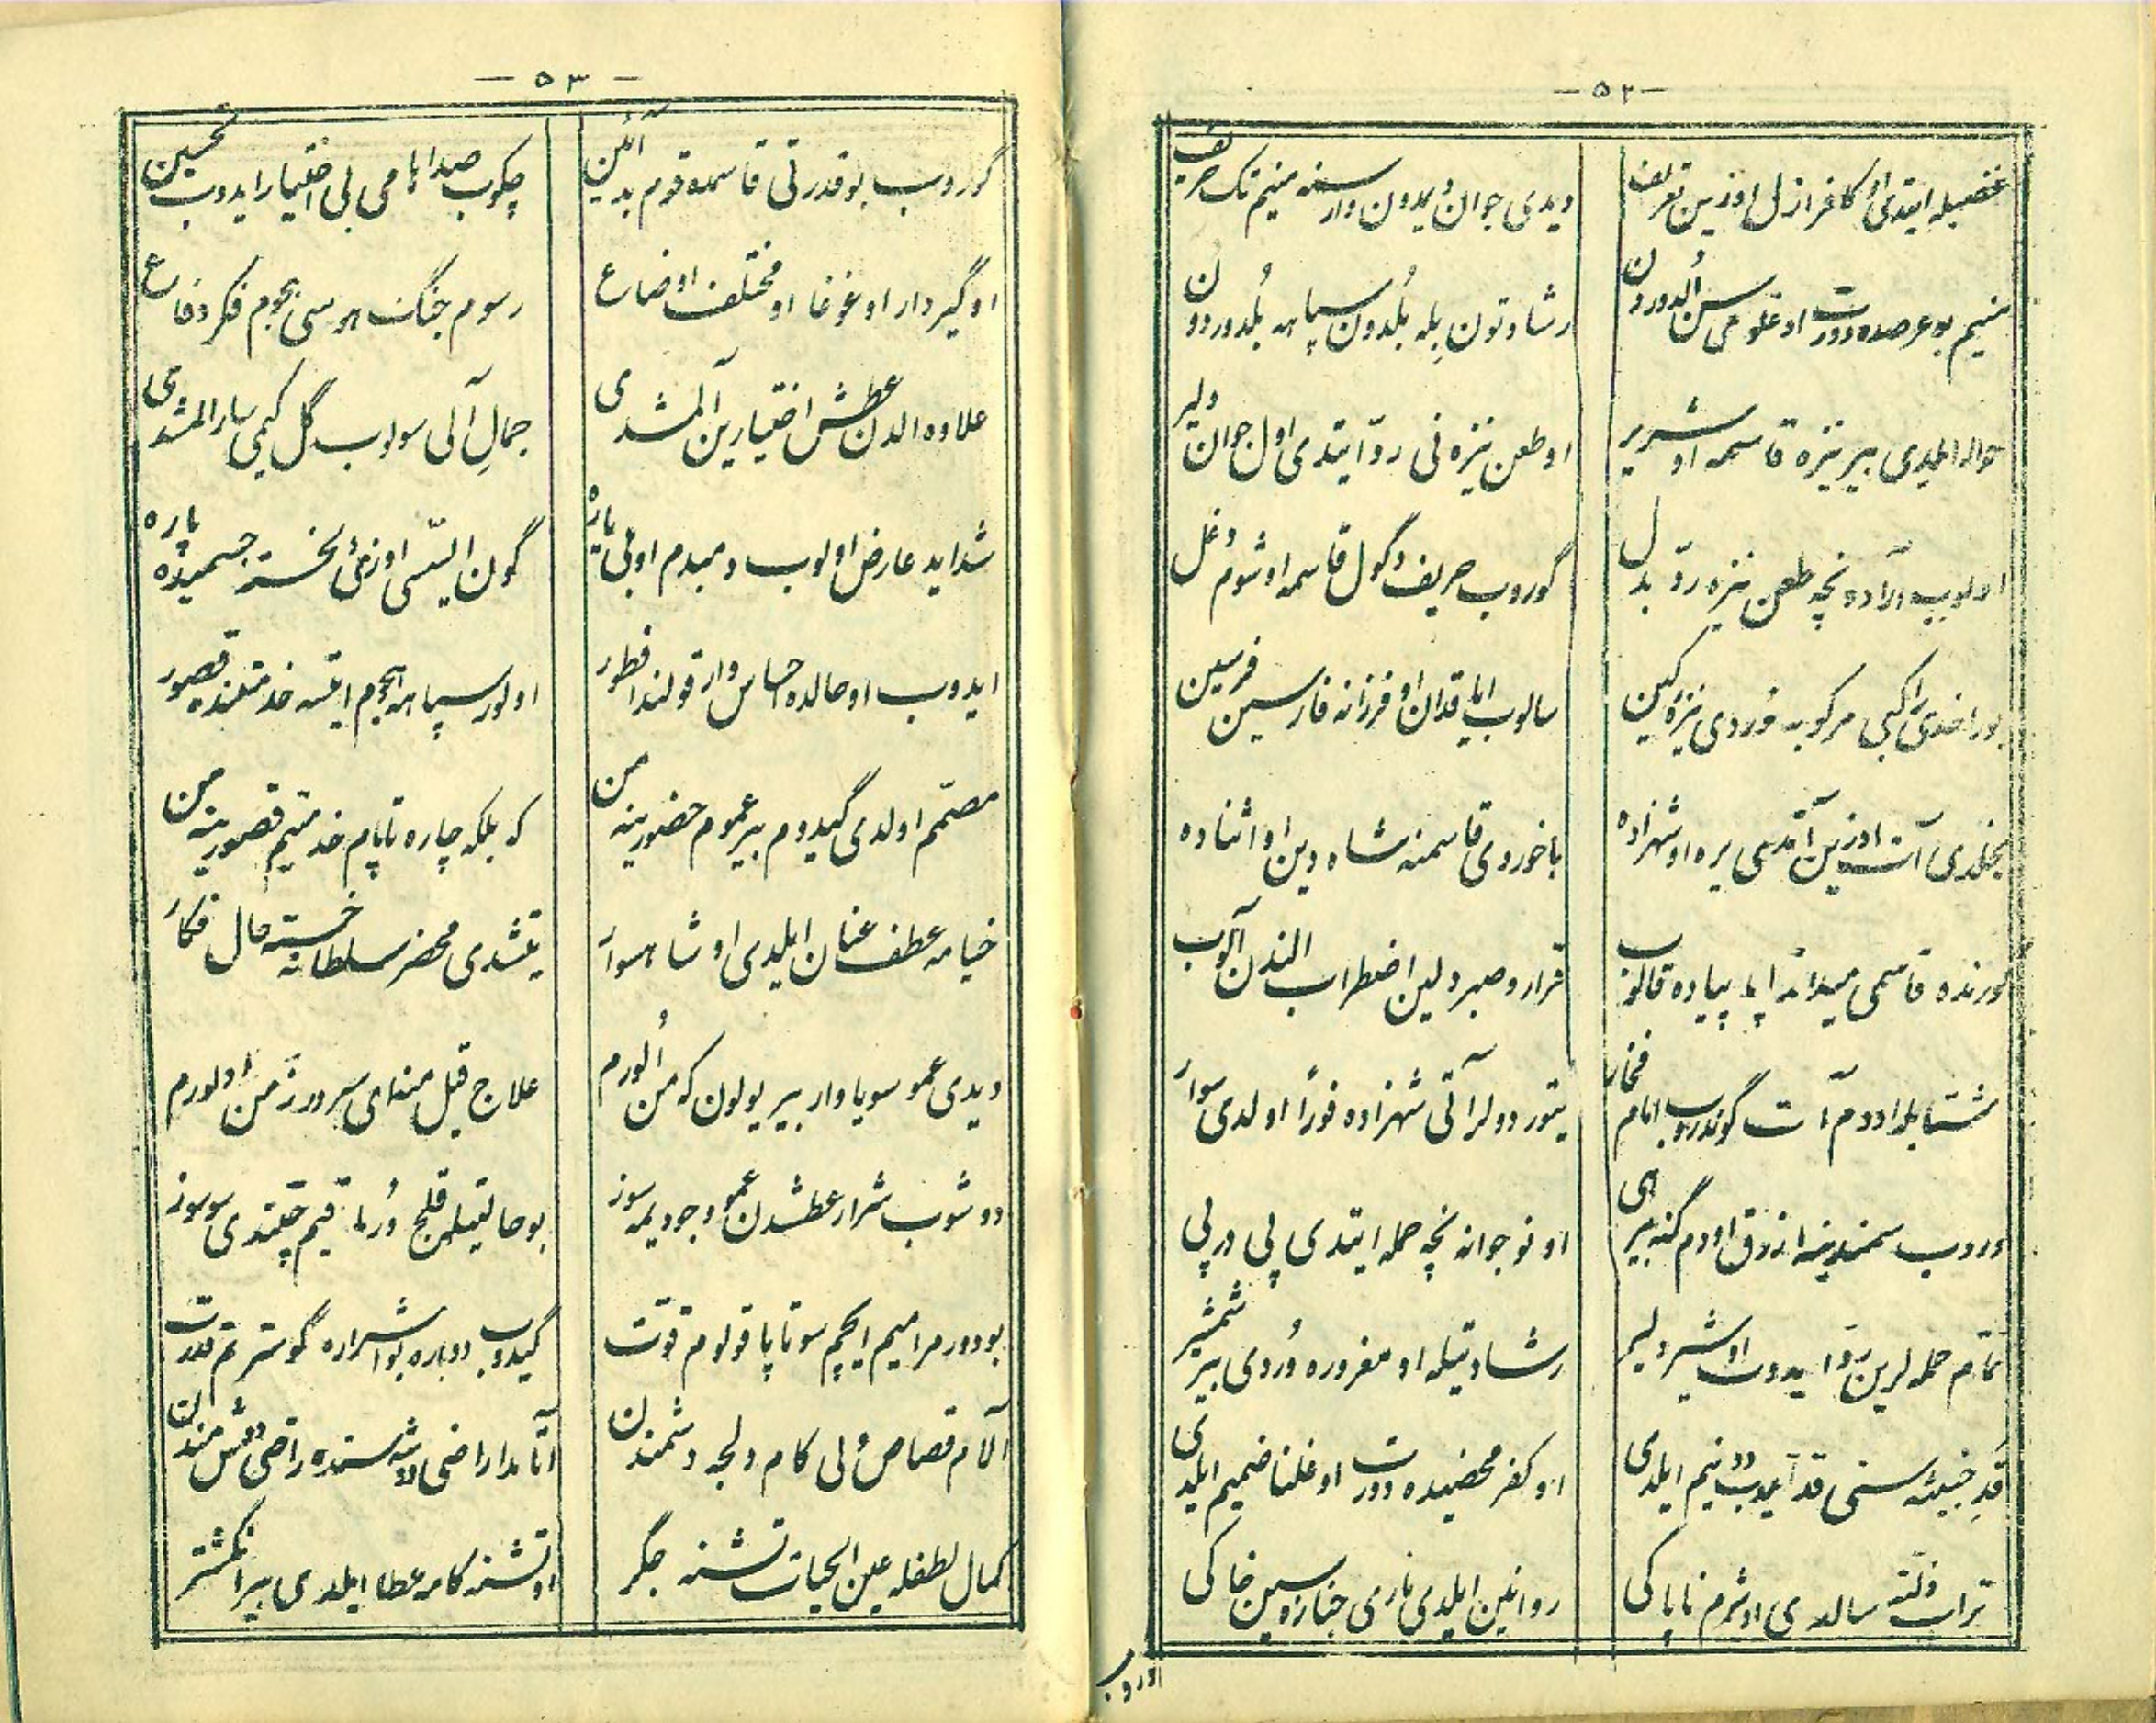 — ۵۲ —
غضبیله ایتدی او کافر ازل اوزین تعریف
دیدی جوان بُیدون وار سنه منیم تک حریف
منیم بو عرصه‌ده دورت اوغلومی سن اُلدوردون
رشادتون بِله بُلدون سپاهه بُلدوردون
حواله ایلدی بیر نیزه قاسمه او شریر
او طعن نیزه‌نی ردّ ایتدی اول جوان دلیر
اولوب آرادا نچه طعن نیزه ردّ بدل
گوروب حریف دگول قاسمه او شوم دغل
بوراخدی راکبی مرکوبه وُردی نیزهٔ کین
سالوب ایاقدان او فرزانه فارسین فرسین
یخلدی آت اوزین آتدی یره او شهزاده
باخوردی قاسمنه شاه دین او اثناده
گورنده قاسمی میدانه ایله پیاده قالوب
قرار و صبر دلین اضطراب الندن آلوب
شتابله اودم آت گوندروب امام فخار
یتوردولر آتی شهزاده فوراً اولدی سوار
وروب سمندینه ازرق اودم گنه بیر هی
او نوجوانه نچه حمله ایتدی پی در پی
تمام حمله لرین ردّ ایدوب او شیر دلیر
رشادتیله او مغروره وُردی بیر شمشیر
قدِ خبیثه سنی قدّ ایدوب دو نیم ایلدی
او کفر محضیده دورت اوغلنا ضمیم ایلدی
تراب ذلته سالدی او شوم ناپاکی
روانین ایلدی ناری جنازه سین خاکی
اوروب
— ۵۳ —
گوروب بو قدرتی قاسمده قوم بد آئین
چکوب صدا هامی بی اختیار ایدوب تحسین
او گیر دار او غوغا او مختلف اوضاع
رسوم جنگ هوسی هجوم فکر دفاع
علاوه الدن عطش اختیارین آلمشدی
جمالِ آلی سولوب گل کیمی سارالمشدی
شداید عارض اولوب دمبدم اونی یاره
گون ایستی اوزی خسته جسمیده پاره
ایدوب او حالده احساس وار قولندا فطور
اولور سپاهه هجوم ایتسه خدمتنده قصور
مصمّم اولدی گیدوم بیر عموم حضورینه من
که بلکه چاره تاپام خدمتیم قصورینه من
خیامه عطف عنان ایلدی او شاهسوار
یتشدی محضر سلطانه خسته حال فکار
دیدی عمو سویا وار بیر یولون که من اُلورم
علاج قیل منه ای سرورز من اولورم
دوشوب شرار عطشدن عمو وجودیمه سوز
بو حالتیله قلج وُرماقیم چتندی سوسوز
بودور مرامیم ایچیم سو تاپا قولوم قوّت
گیدوب دوباره بو اشراره گوسترم قدرت
آلام قصاص ولی کام دلجه دشمندن
آتامدا راضی
کمال لطفله عین الحیات تشنه جگر
او تشنه کامه عطا ایلدی بیر انگشتر